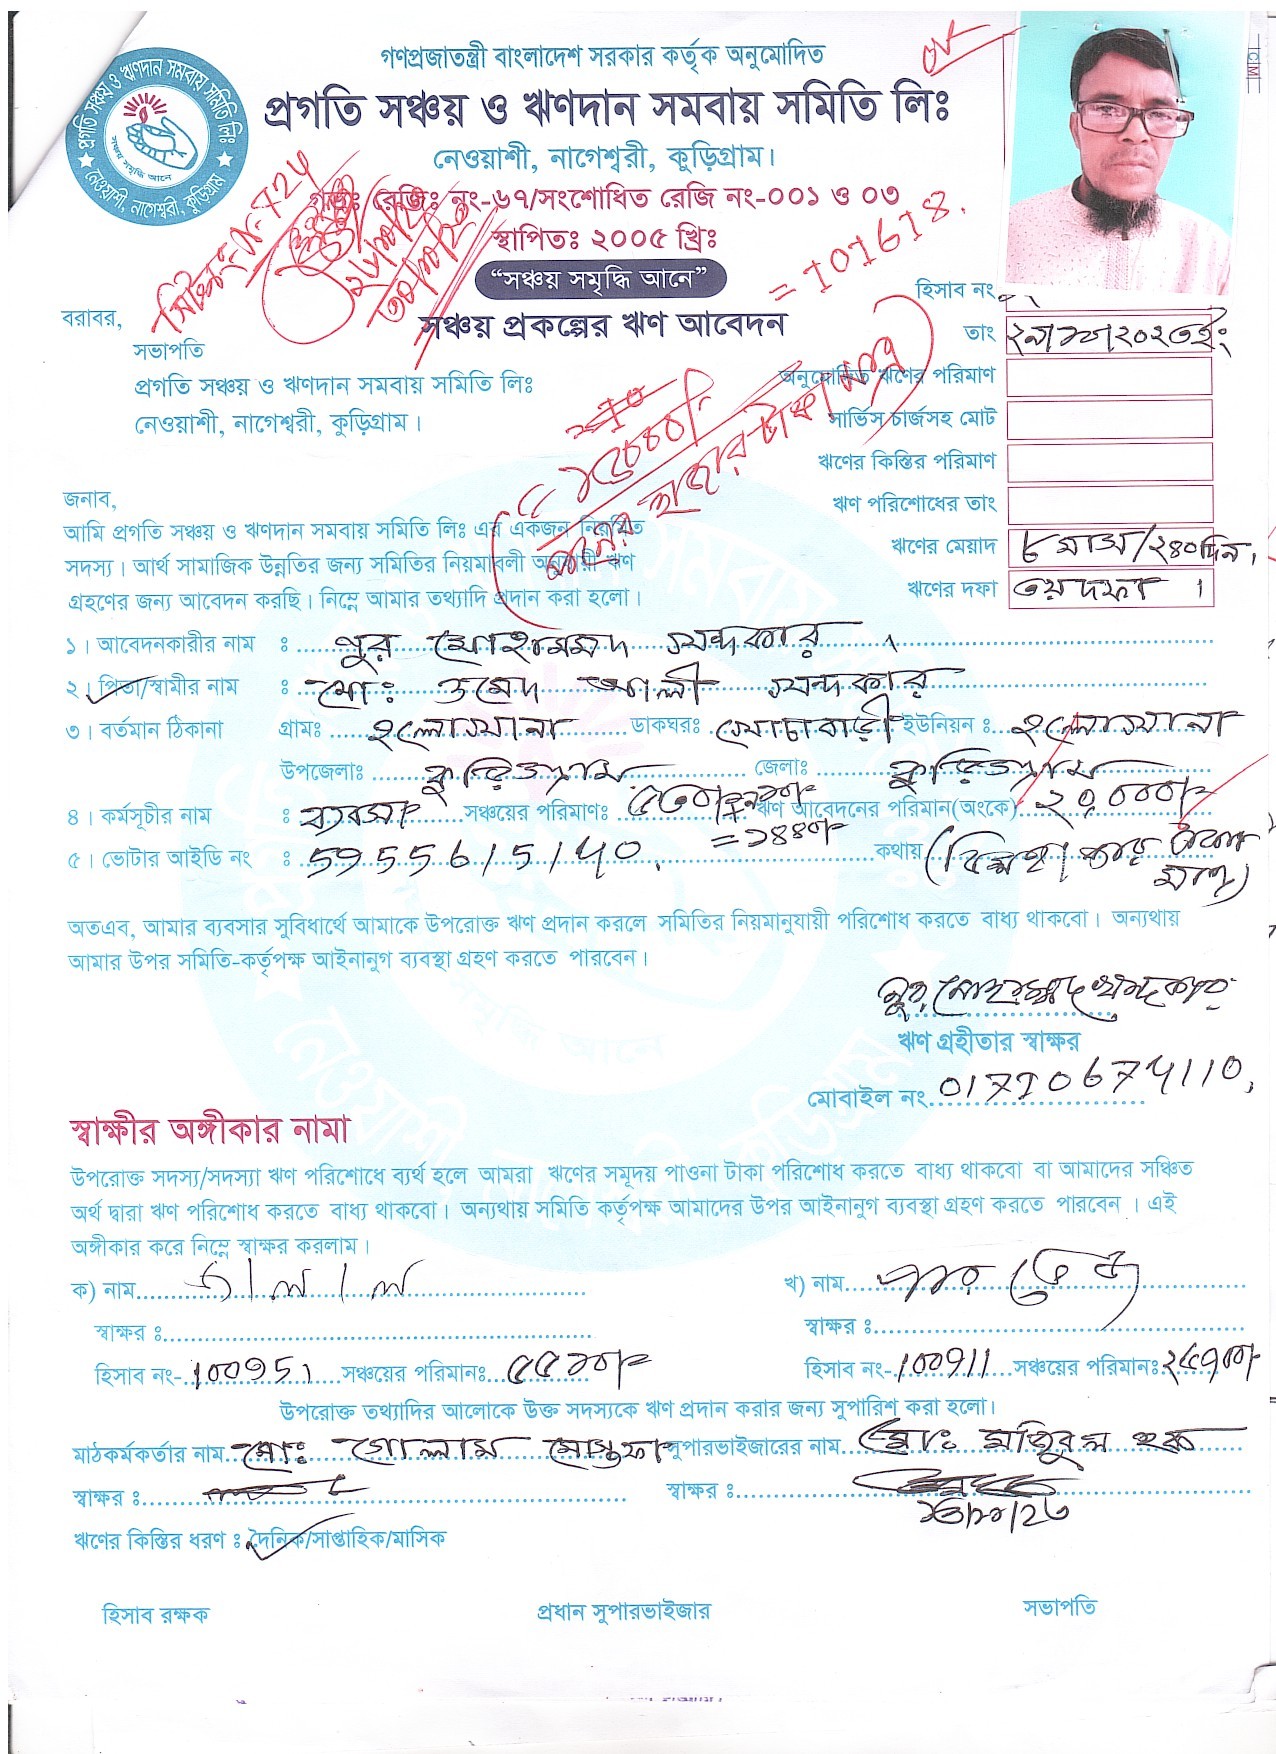 গণপ্রজাতন্ত্রী বাংলাদেশ সরকার কর্তৃক অনুমোদিত
প্রগতি সঞ্চয় ও ঋণদান সমবায় সমিতি লিঃ
নেওয়াশী, নাগেশ্বরী, কুড়িগ্রাম।
গভঃ রেজিঃ নং-৬৭/সংশোধিত রেজি নং-০০১ ও ০৩
স্থাপিতঃ ২০০৫ খ্রিঃ
= 101618.
“সঞ্চয় সমৃদ্ধি আনে”
সঞ্চয় প্রকল্পের ঋণ আবেদন
হিসাব নং
বরাবর,
তাং
সভাপতি
প্রগতি সঞ্চয় ও ঋণদান সমবায় সমিতি লিঃ
অনুমোদিত ঋণের পরিমাণ
নেওয়াশী, নাগেশ্বরী, কুড়িগ্রাম।
সার্ভিস চার্জসহ মোট
ঋণের কিস্তির পরিমাণ
ঋণ পরিশোধের তাং
ঋণের মেয়াদ ৮ মাস/২৪০দিন,
ঋণের দফা ৩য় দফা ।
জনাব,
আমি প্রগতি সঞ্চয় ও ঋণদান সমবায় সমিতি লিঃ এর একজন নিয়মিত
সদস্য। আর্থ সামাজিক উন্নতির জন্য সমিতির নিয়মাবলী অনুযায়ী ঋণ
গ্রহণের জন্য আবেদন করছি। নিম্নে আমার তথ্যাদি প্রদান করা হলো।
১। আবেদনকারীর নাম ঃ নুর মোহাম্মদ খন্দকার ।
২। পিতা/স্বামীর নাম ঃ মোঃ উমেদ আলী খন্দকার
৩। বর্তমান ঠিকানা গ্রামঃ হলোখানা ডাকঘরঃ ইউনিয়ন ঃ হলোখানা
উপজেলাঃ কুড়িগ্রাম জেলাঃ কুড়িগ্রাম
৪। কর্মসূচীর নাম ঃ ব্যবসা সঞ্চয়ের পরিমাণঃ ঋণ আবেদনের পরিমান(অংকে) ২০,০০০/-
৫। ভোটার আইডি নং ঃ 5955615140. কথায় (বিশ হাজার টাকা মাত্র)
অতএব, আমার ব্যবসার সুবিধার্থে আমাকে উপরোক্ত ঋণ প্রদান করলে সমিতির নিয়মানুযায়ী পরিশোধ করতে বাধ্য থাকবো। অন্যথায়
আমার উপর সমিতি-কর্তৃপক্ষ আইনানুগ ব্যবস্থা গ্রহণ করতে পারবেন।
নুর মোহাম্মদ খন্দকার
ঋণ গ্রহীতার স্বাক্ষর
মোবাইল নং
স্বাক্ষীর অঙ্গীকার নামা
উপরোক্ত সদস্য/সদস্যা ঋণ পরিশোধে ব্যর্থ হলে আমরা ঋণের সমূদয় পাওনা টাকা পরিশোধ করতে বাধ্য থাকবো বা আমাদের সঞ্চিত
অর্থ দ্বারা ঋণ পরিশোধ করতে বাধ্য থাকবো। অন্যথায় সমিতি কর্তৃপক্ষ আমাদের উপর আইনানুগ ব্যবস্থা গ্রহণ করতে পারবেন । এই
অঙ্গীকার করে নিম্নে স্বাক্ষর করলাম।
ক) নাম খ) নাম
স্বাক্ষর ঃ স্বাক্ষর ঃ
হিসাব নং-100951 সঞ্চয়ের পরিমানঃ হিসাব নং-100911 সঞ্চয়ের পরিমানঃ
উপরোক্ত তথ্যাদির আলোকে উক্ত সদস্যকে ঋণ প্রদান করার জন্য সুপারিশ করা হলো।
মাঠকর্মকর্তার নাম মোঃ গোলাম মোস্তফা সুপারভাইজারের নাম মোঃ হক
স্বাক্ষর ঃ স্বাক্ষর ঃ
ঋণের কিস্তির ধরণ ঃ দৈনিক/সাপ্তাহিক/মাসিক
হিসাব রক্ষক প্রধান সুপারভাইজার সভাপতি